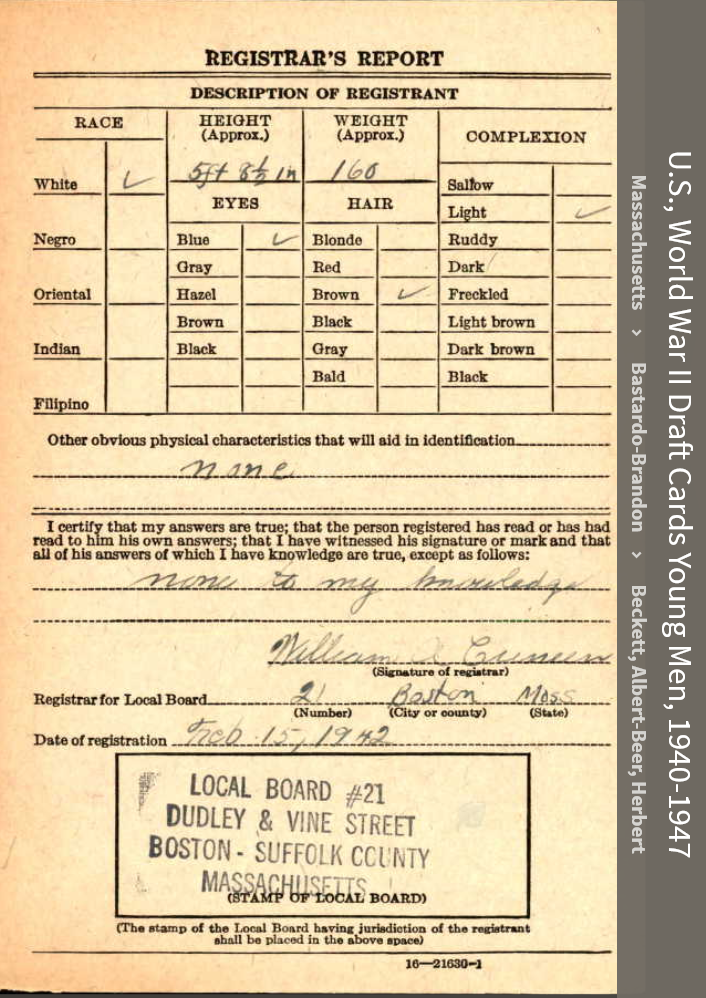 REGISTRAR'S REPORT
DESCRIPTION OF REGISTRANT
RACE
HEIGHT (Approx.)
WEIGHT (Approx.)
COMPLEXION
White ✓
5 ft 8½ in
160
Sallow
EYES
HAIR
Light ✓
Negro
Blue ✓
Blonde
Ruddy
Gray
Red
Dark
Oriental
Hazel
Brown ✓
Freckled
Brown
Black
Light brown
Indian
Black
Gray
Dark brown
Bald
Black
Filipino
Other obvious physical characteristics that will aid in identification
none
I certify that my answers are true; that the person registered has read or has had
read to him his own answers; that I have witnessed his signature or mark and that
all of his answers of which I have knowledge are true, except as follows:
none to my knowledge
William
(Signature of registrar)
Registrar for Local Board 21 Boston Mass
(Number) (City or county) (State)
Date of registration Feb 15, 1942
LOCAL BOARD #21
DUDLEY & VINE STREET
BOSTON - SUFFOLK COUNTY
MASSACHUSETTS
(STAMP OF LOCAL BOARD)
(The stamp of the Local Board having jurisdiction of the registrant
shall be placed in the above space)
16—21630-1
U.S., World War II Draft Cards Young Men, 1940-1947
Massachusetts > Bastardo-Brandon > Beckett, Albert-Beer, Herbert